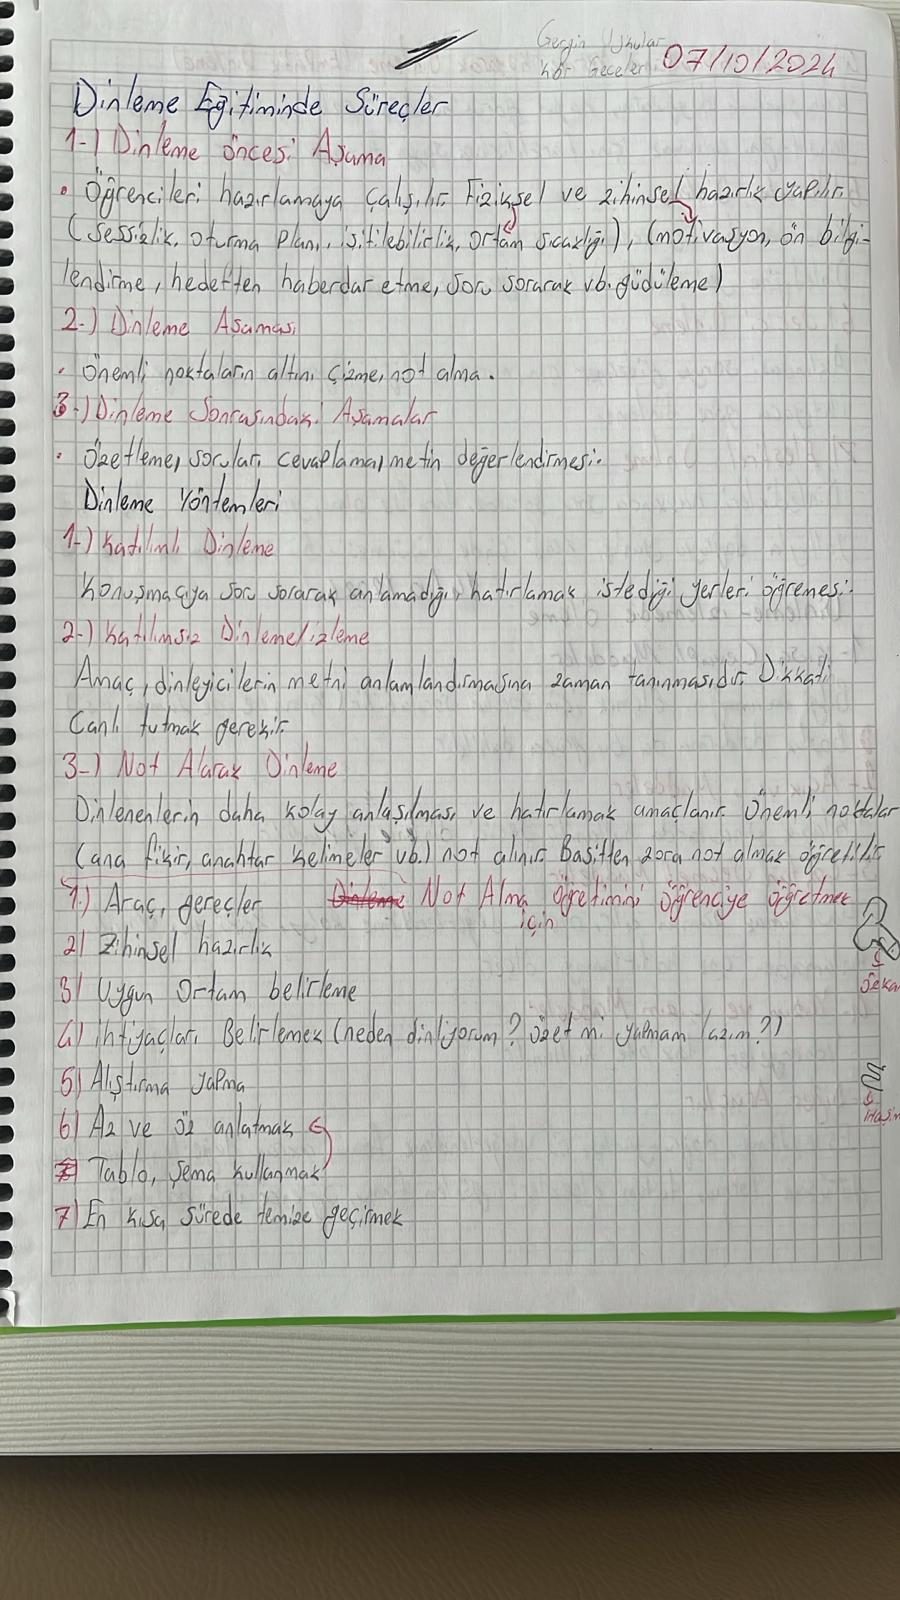 Gergin Uykular
Kör Geceler
07/10/2024
Dinleme Eğitiminde Süreçler
1-) Dinleme öncesi Aşama
• Öğrencileri hazırlamaya çalışılır. Fiziksel ve zihinsel hazırlık yapılır.
(Sessizlik, oturma planı, işitilebilirlik, ortam sıcaklığı), (motivasyon, ön bilgi-
lendirme, hedeften haberdar etme, soru sorarak vb. güdüleme)
2-) Dinleme Aşaması
• Önemli noktaların altını çizme, not alma.
3-) Dinleme Sonrasındaki Aşamalar
• Özetleme, soruları cevaplama, metin değerlendirmesi.
Dinleme Yöntemleri
1-) Katılımlı Dinleme
Konuşmacıya soru sorarak anlamadığı, hatırlamak istediği yerleri öğrenmesi.
2-) Katılımsız Dinleme/izleme
Amaç, dinleyicilerin metni anlamlandırmasına zaman tanınmasıdır. Dikkati
Canlı tutmak gerekir.
3-) Not Alarak Dinleme
Dinlenenlerin daha kolay anlaşılması ve hatırlamak amaçlanır. Önemli noktalar
(ana fikir, anahtar kelimeler vb.) not alınır. Basitten zora not almak öğretilir
1.) Araç, gereçler Dinleme Not Alma öğretimini öğrenciye öğretmek
için
2) Zihinsel hazırlık
3) Uygun Ortam belirleme
4) İhtiyaçları Belirlemek (neden dinliyorum? Özet mi yapmam lazım?)
5) Alıştırma yapma
6) Az ve öz anlatmak
Tablo, şema kullanmak
7) En kısa sürede temize geçirmek